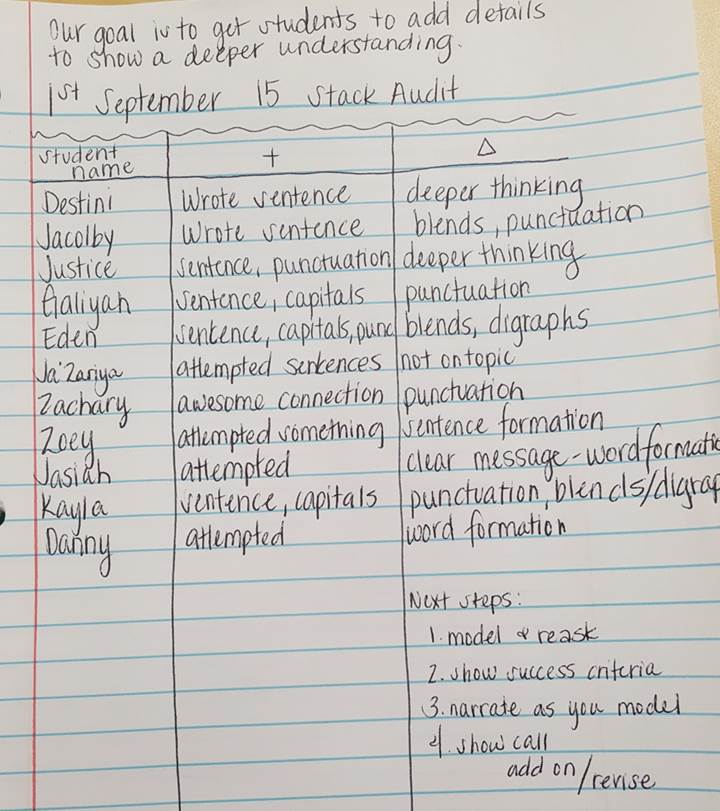 Our goal is to get students to add details
to show a deeper understanding.
1st September 15 Stack Audit
student name + Δ
Destini Wrote sentence deeper thinking
Jacolby Wrote sentence blends, punctuation
Justice sentence, punctuation deeper thinking
Aaliyah sentence, capitals punctuation
Eden sentence, capitals, punc blends, digraphs
Ja'Zariya attempted sentences not on topic
Zachary awesome connection punctuation
Zoey attempted something sentence formation
Jasiah attempted clear message-word formatic
Kayla sentence, capitals punctuation, blends/digrap
Danny attempted word formation
Next steps:
1. model & reask
2. show success criteria
3. narrate as you model
4. show call
add on/revise